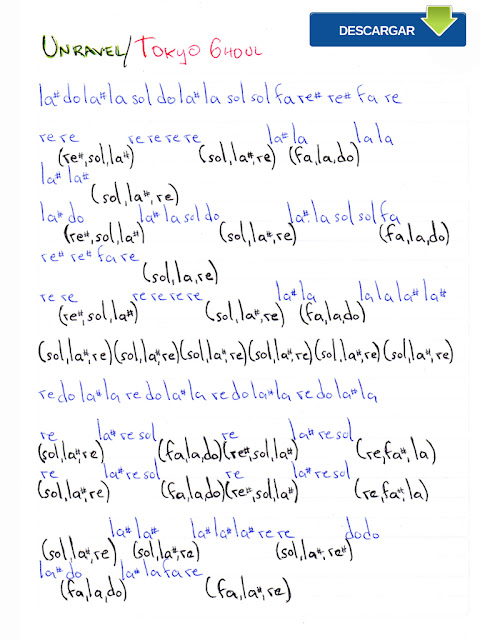 DESCARGAR
UNRAVEL/TOKYO GHOUL
la# do la# la sol do la# la sol sol fa re# re# fa re
re re re re re re la# la la la
(re#,sol,la#) (sol,la#,re) (fa,la,do)
la# la#
(sol,la#,re)
la# do la# la sol do la# la sol sol fa
(re#,sol,la#) (sol,la#,re) (fa,la,do)
re# re# fa re
(sol,la,re)
re re re re re re la# la la la la# la#
(re#,sol,la#) (sol,la#,re) (fa,la,do)
(sol,la#,re) (sol,la#,re) (sol,la#,re) (sol,la#,re) (sol,la#,re) (sol,la#,re)
re do la# la re do la# la re do la# la re do la# la
re la# re sol re la# re sol
(sol,la#,re) (fa,la,do) (re#,sol,la#) (re,fa#,la)
re la# re sol re la# re sol
(sol,la#,re) (fa,la,do) (re#,sol,la#) (re,fa#,la)
la# la# la# la# la# re re do do
(sol,la#,re) (sol,la#,re) (sol,la#,re#)
la# do la# la fa re
(fa,la,do) (fa,la#,re)